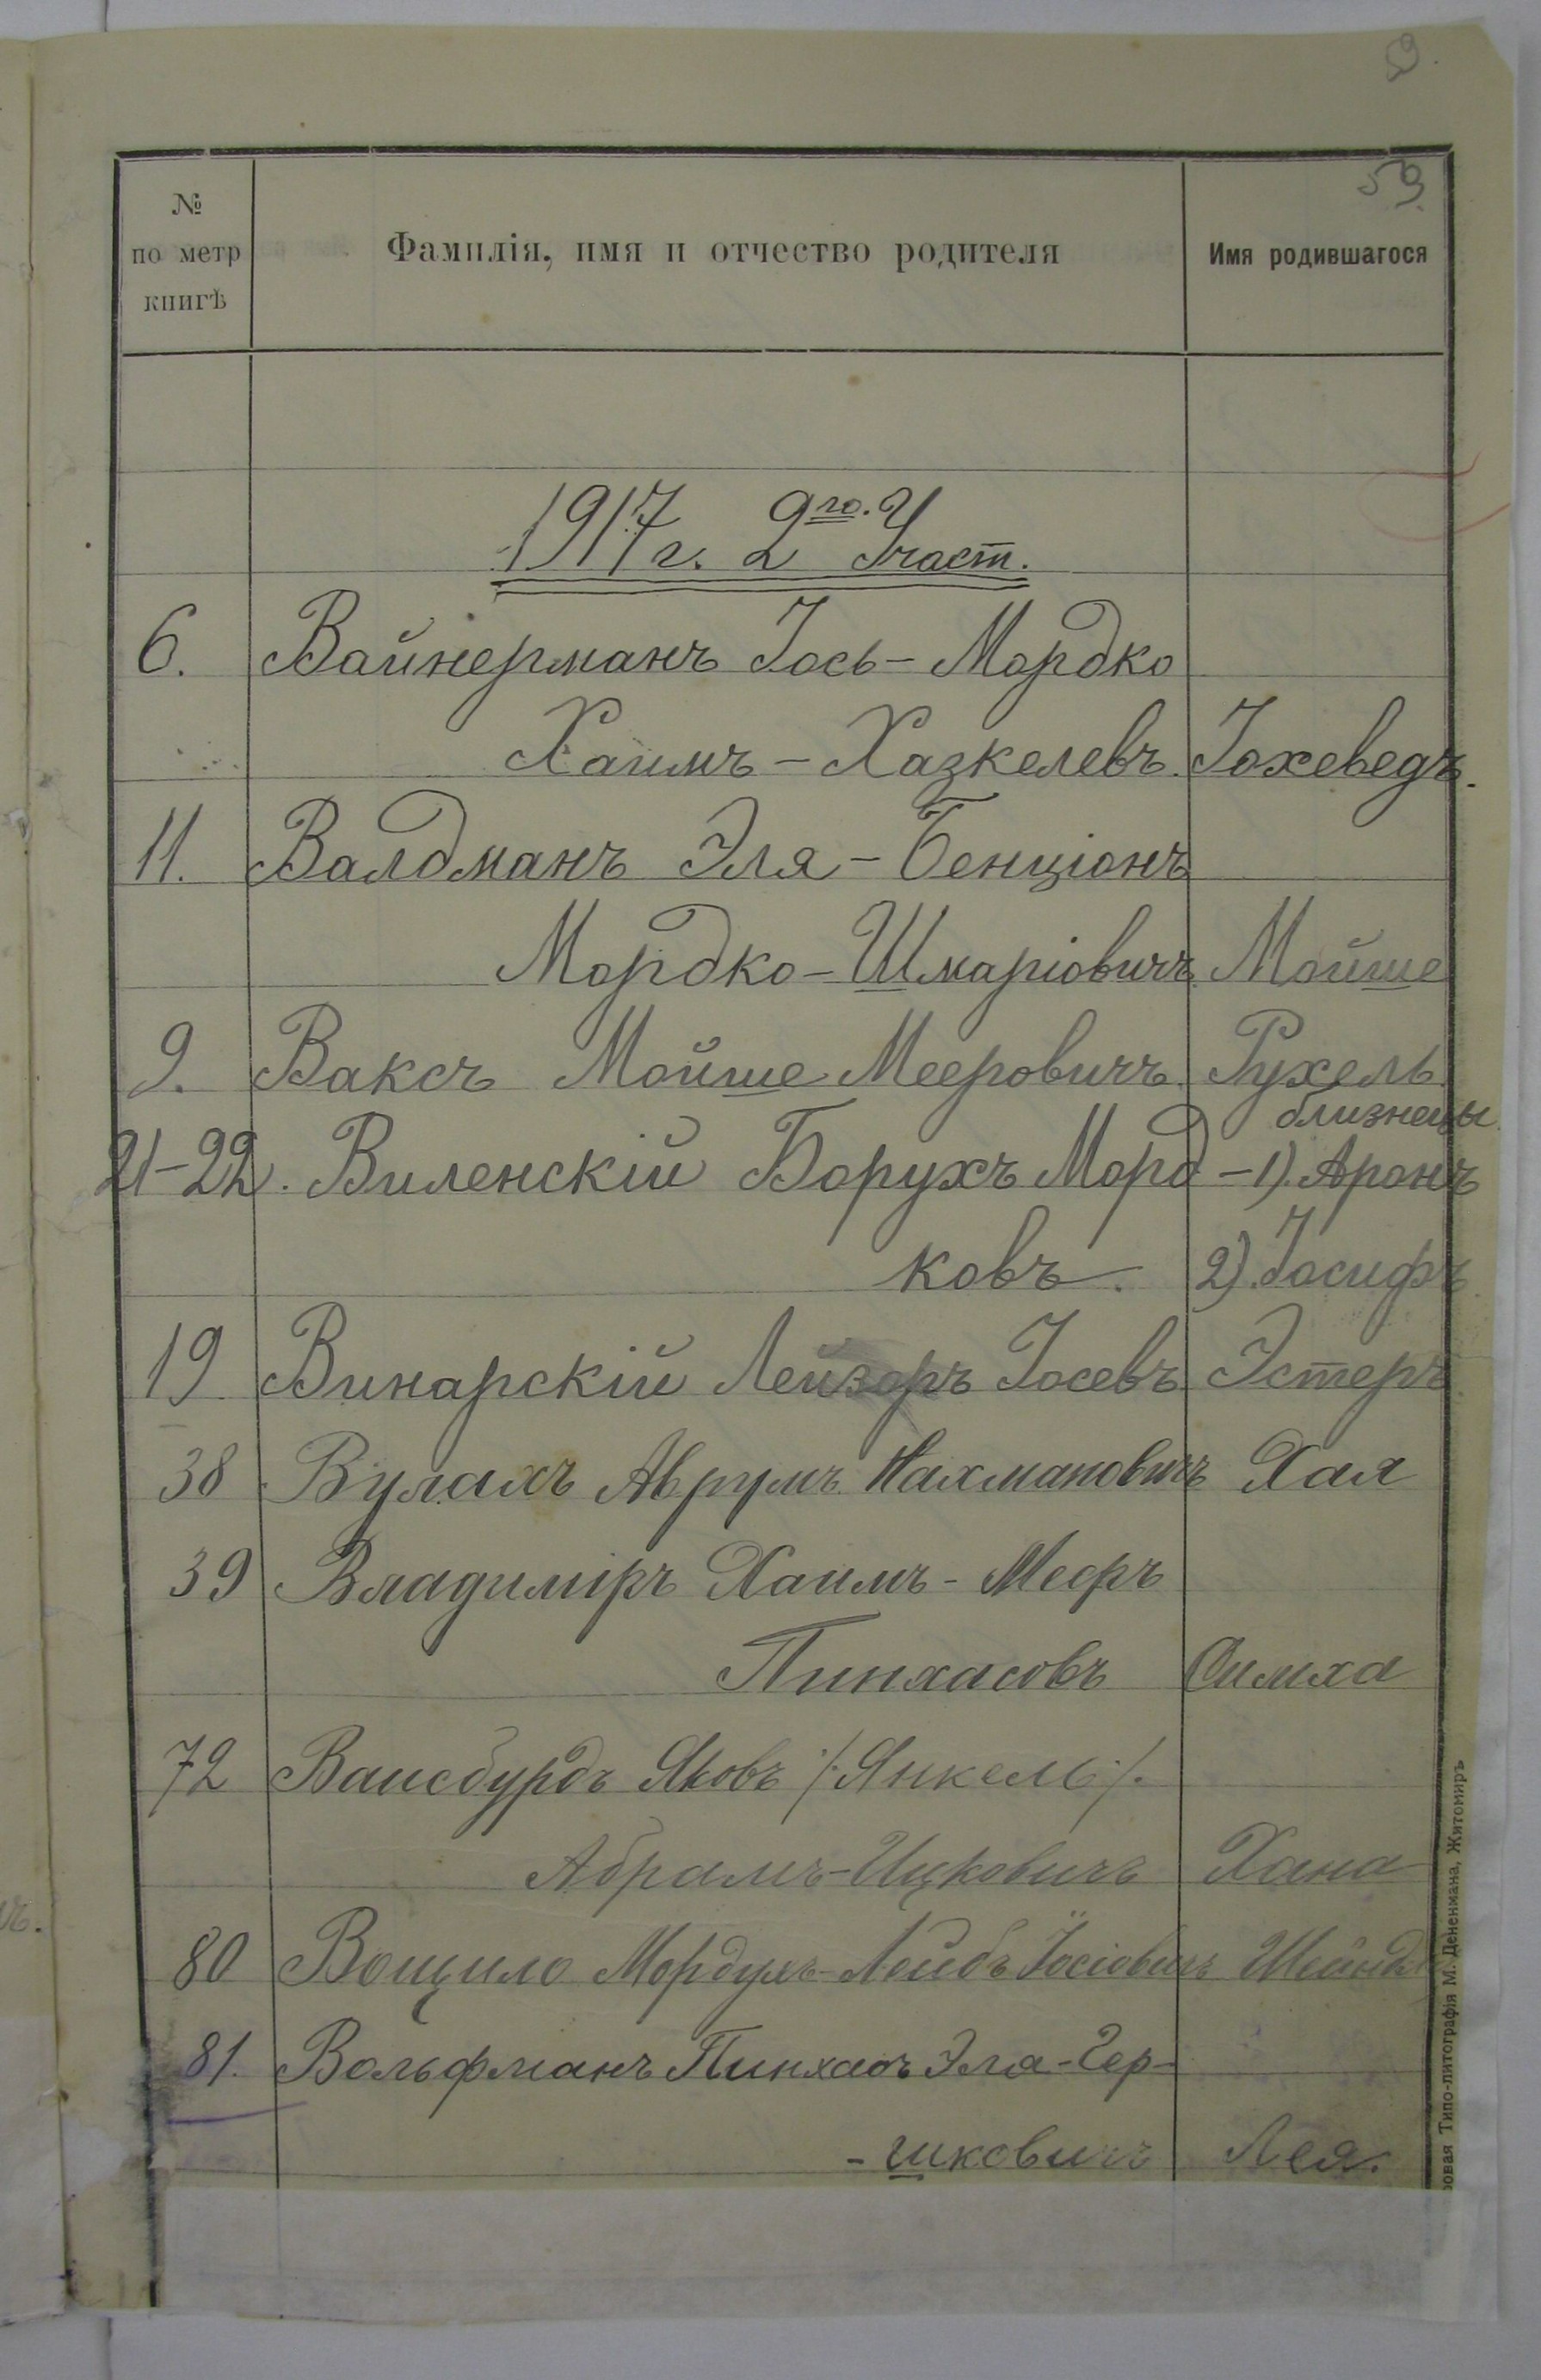 9.
59.
№
по метр
книгѣ
Фамилія, имя и отчество родителя
Имя родившагося
1917 г. 2го. Участ.
6. Вайнерманъ Іось-Мордко
Хаимъ-Хазкелевъ. Іохеведъ.
11. Валдманъ Эля-Бенціонъ
Мордко-Шмаріовичъ. Мойше
9.Ваксъ Мойше Мееровичъ. Рухель.
близнецы.
21-22. Виленскій Борухъ Морд - 1). Аронъ
ковъ. 2). Іосифъ.
19 Винарскій Лейзоръ Іосевъ Эстеръ
38 Вулахъ Аврумъ Нахмановичъ Хая
39 Владиміръ Хаимъ-Мееръ
Пинхасовъ Симха
72 Ваисбурдъ Яковъ /:Янкель:/
Абрамъ-Ицковичъ Хана
80 Вощило Мордухъ-Лейбъ Іосіовичъ
81. Вольфманъ Пинхасъ Эля-Гер-
-шковичъ Лея.
овая Типо-литографія М. Дененмана, Житомиръ